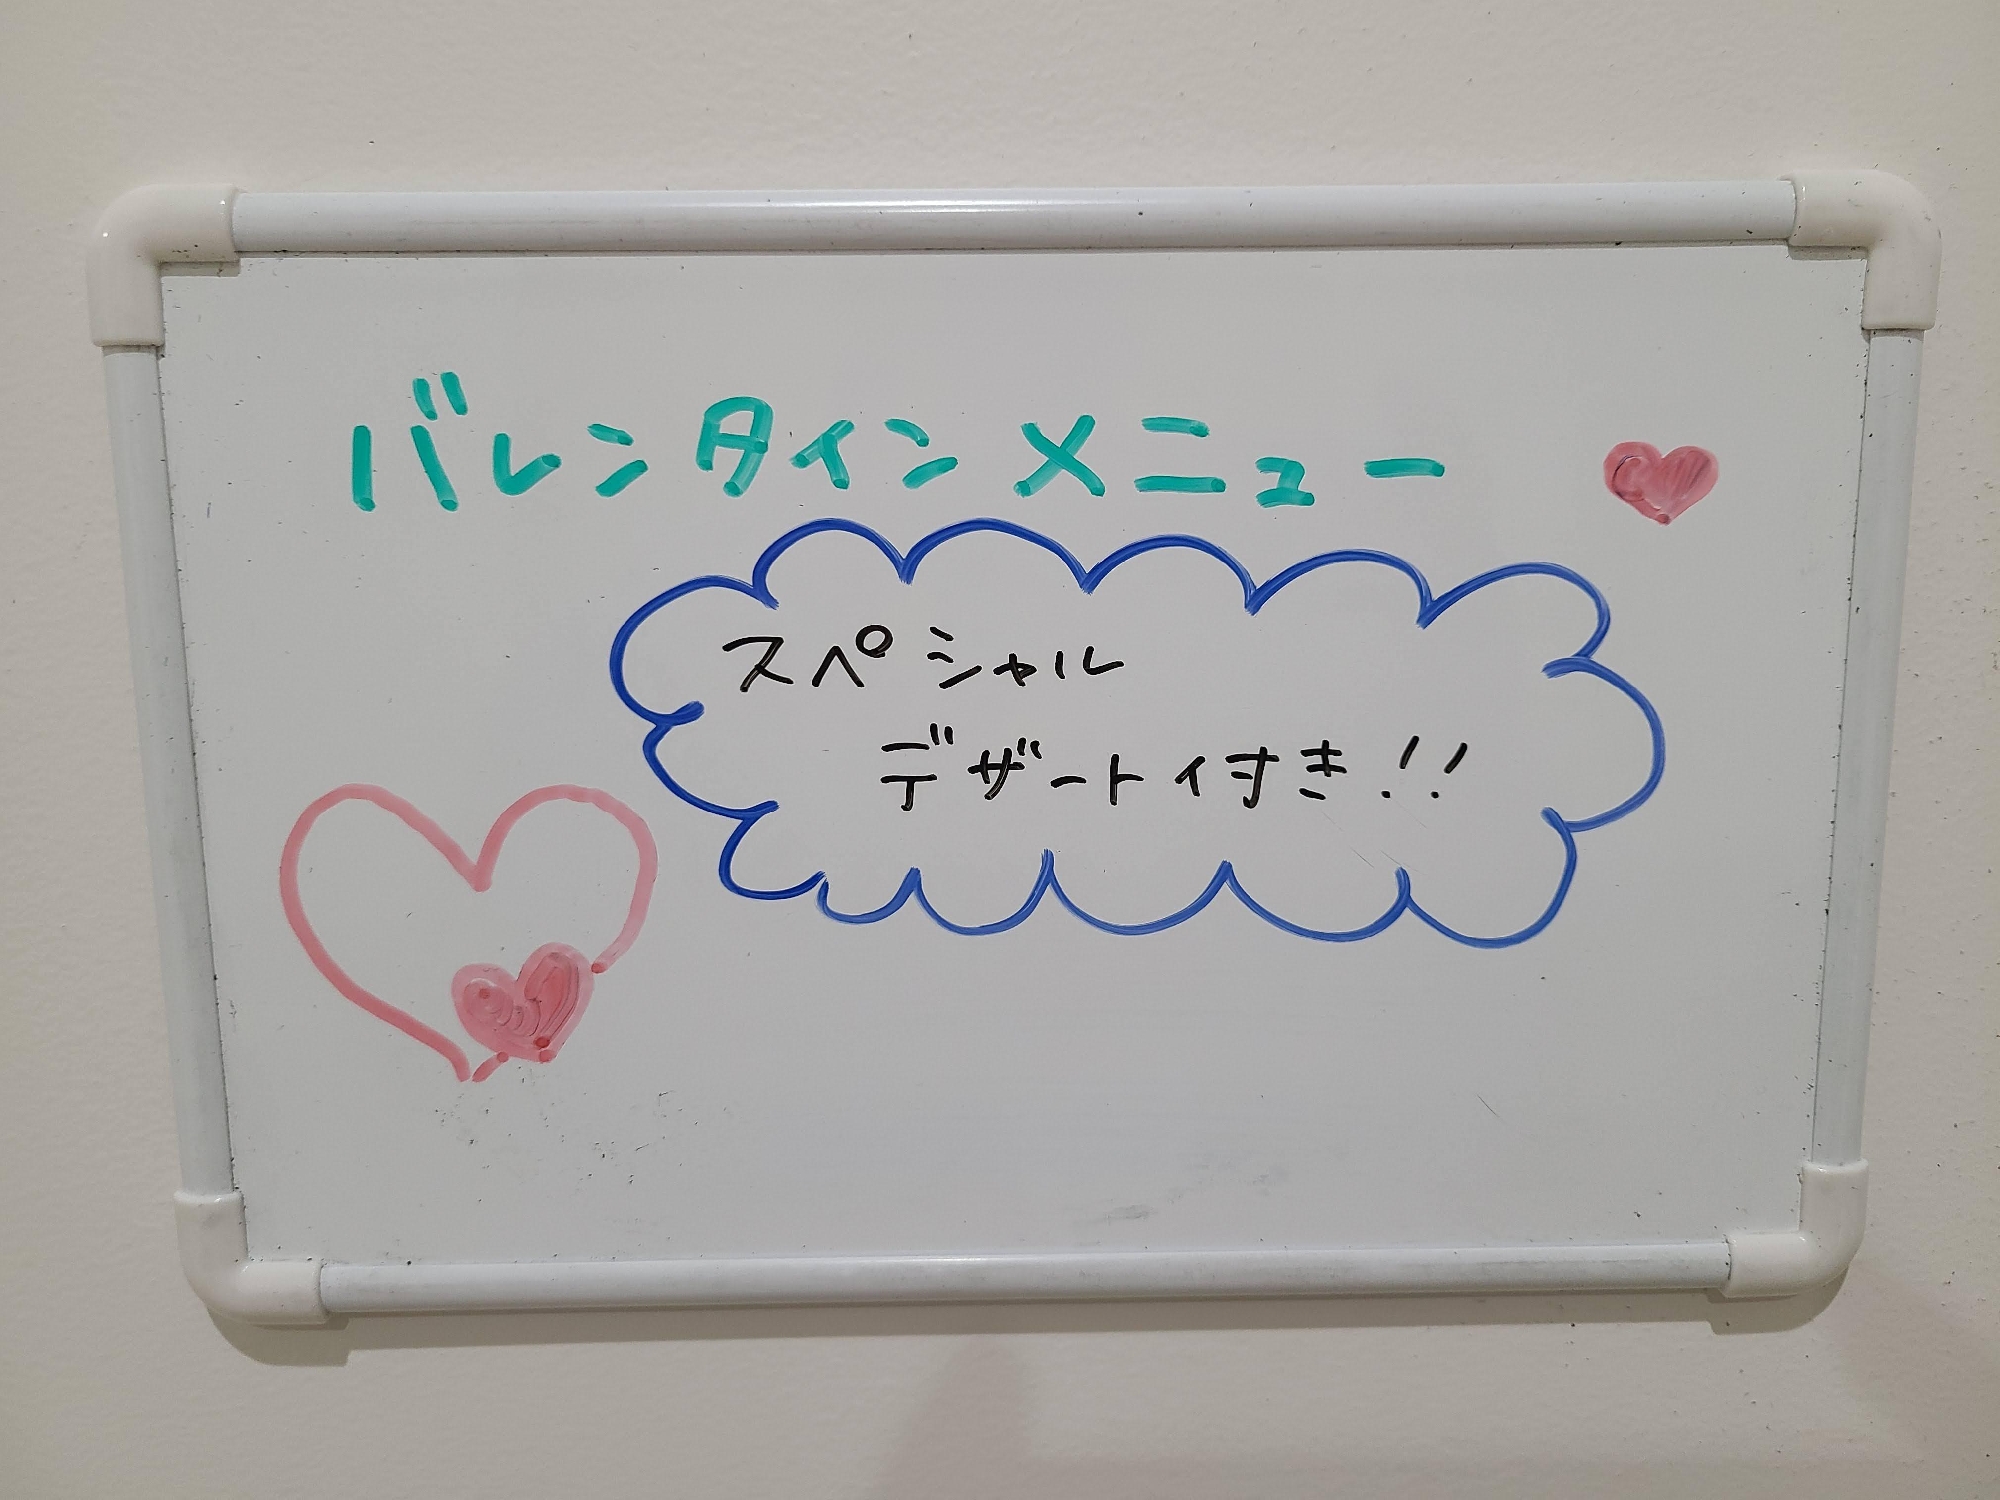 バレンタインメニュー
スペシャル
デザート付き!!